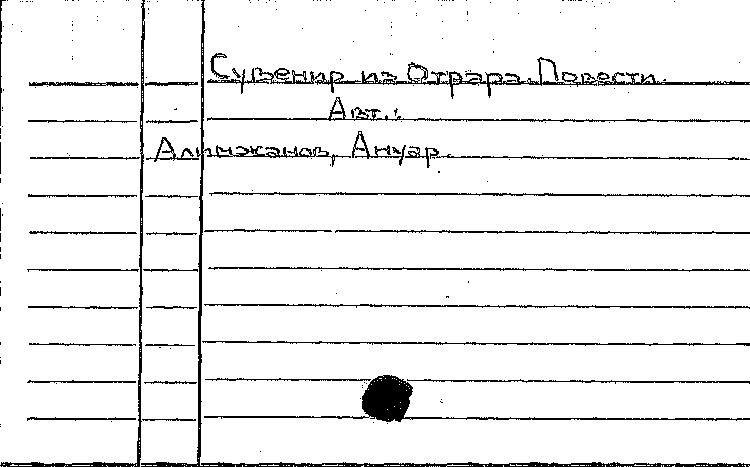 Сувенир из Отрара. Повести.
Авт.:
Алимжанов, Ануар.